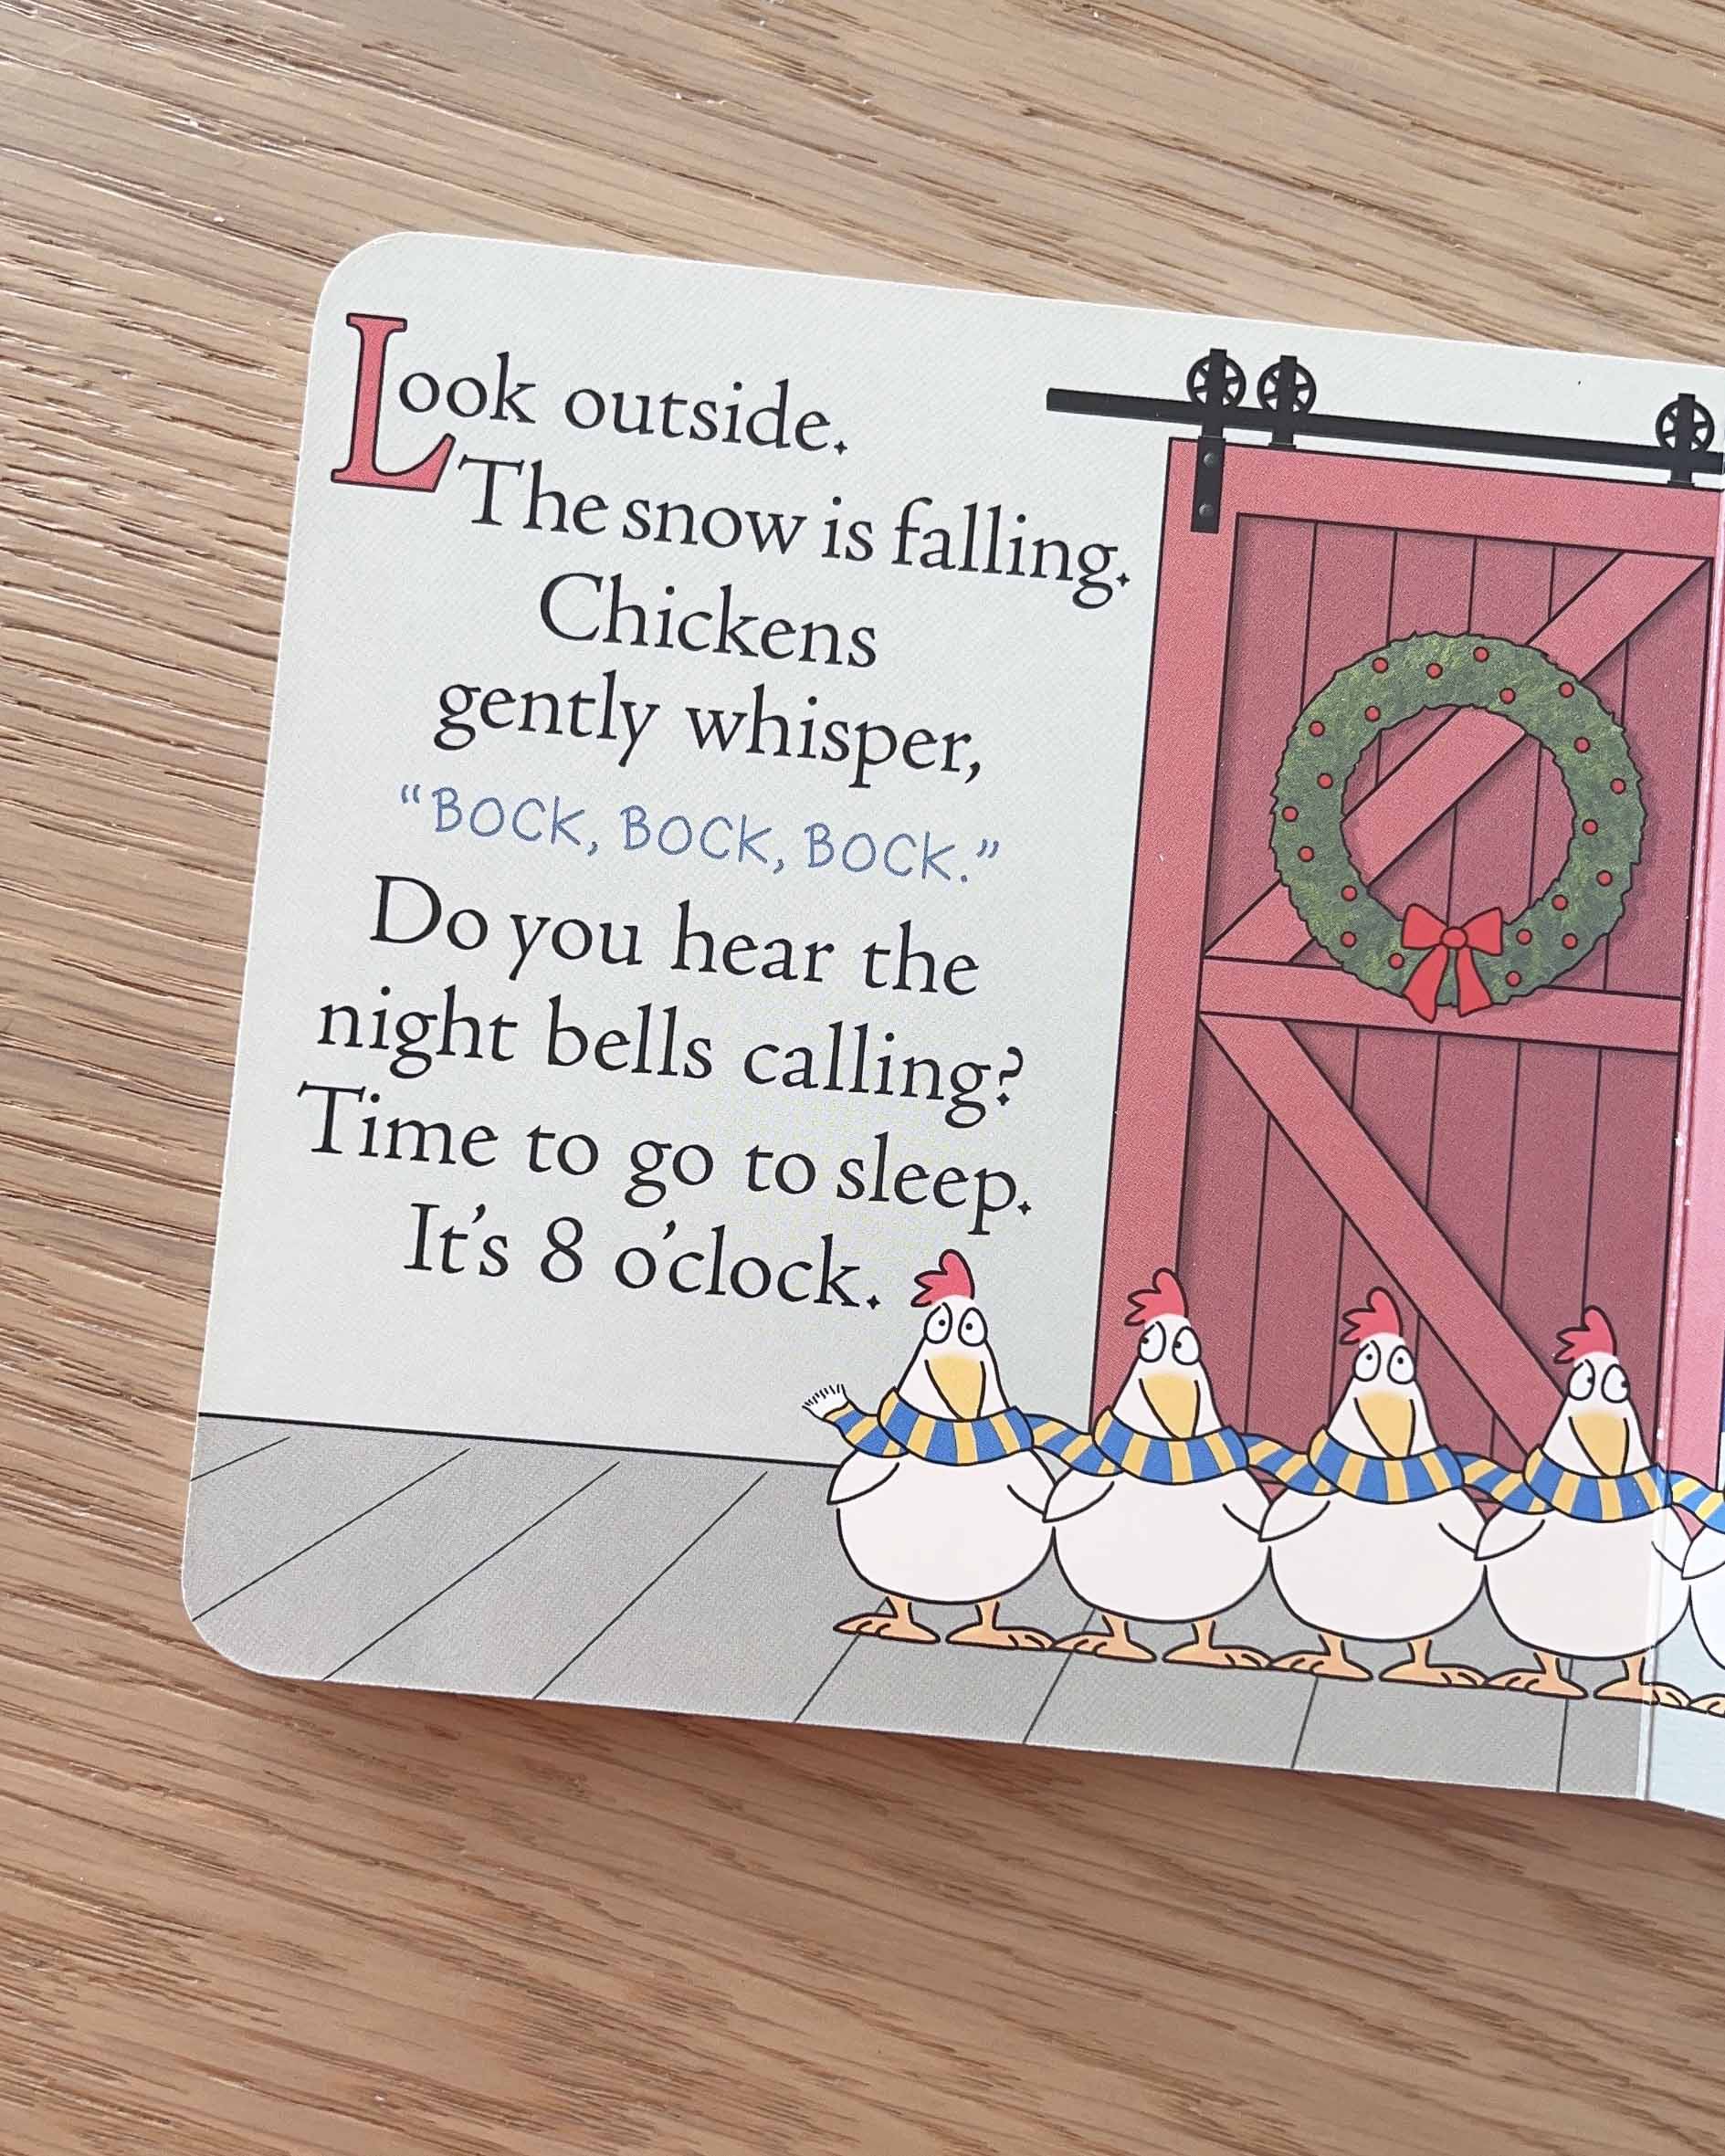 Look outside.
The snow is falling.
Chickens
gently whisper,
“BOCK, BOCK, BOCK.”
Do you hear the
night bells calling?
Time to go to sleep.
It’s 8 o’clock.